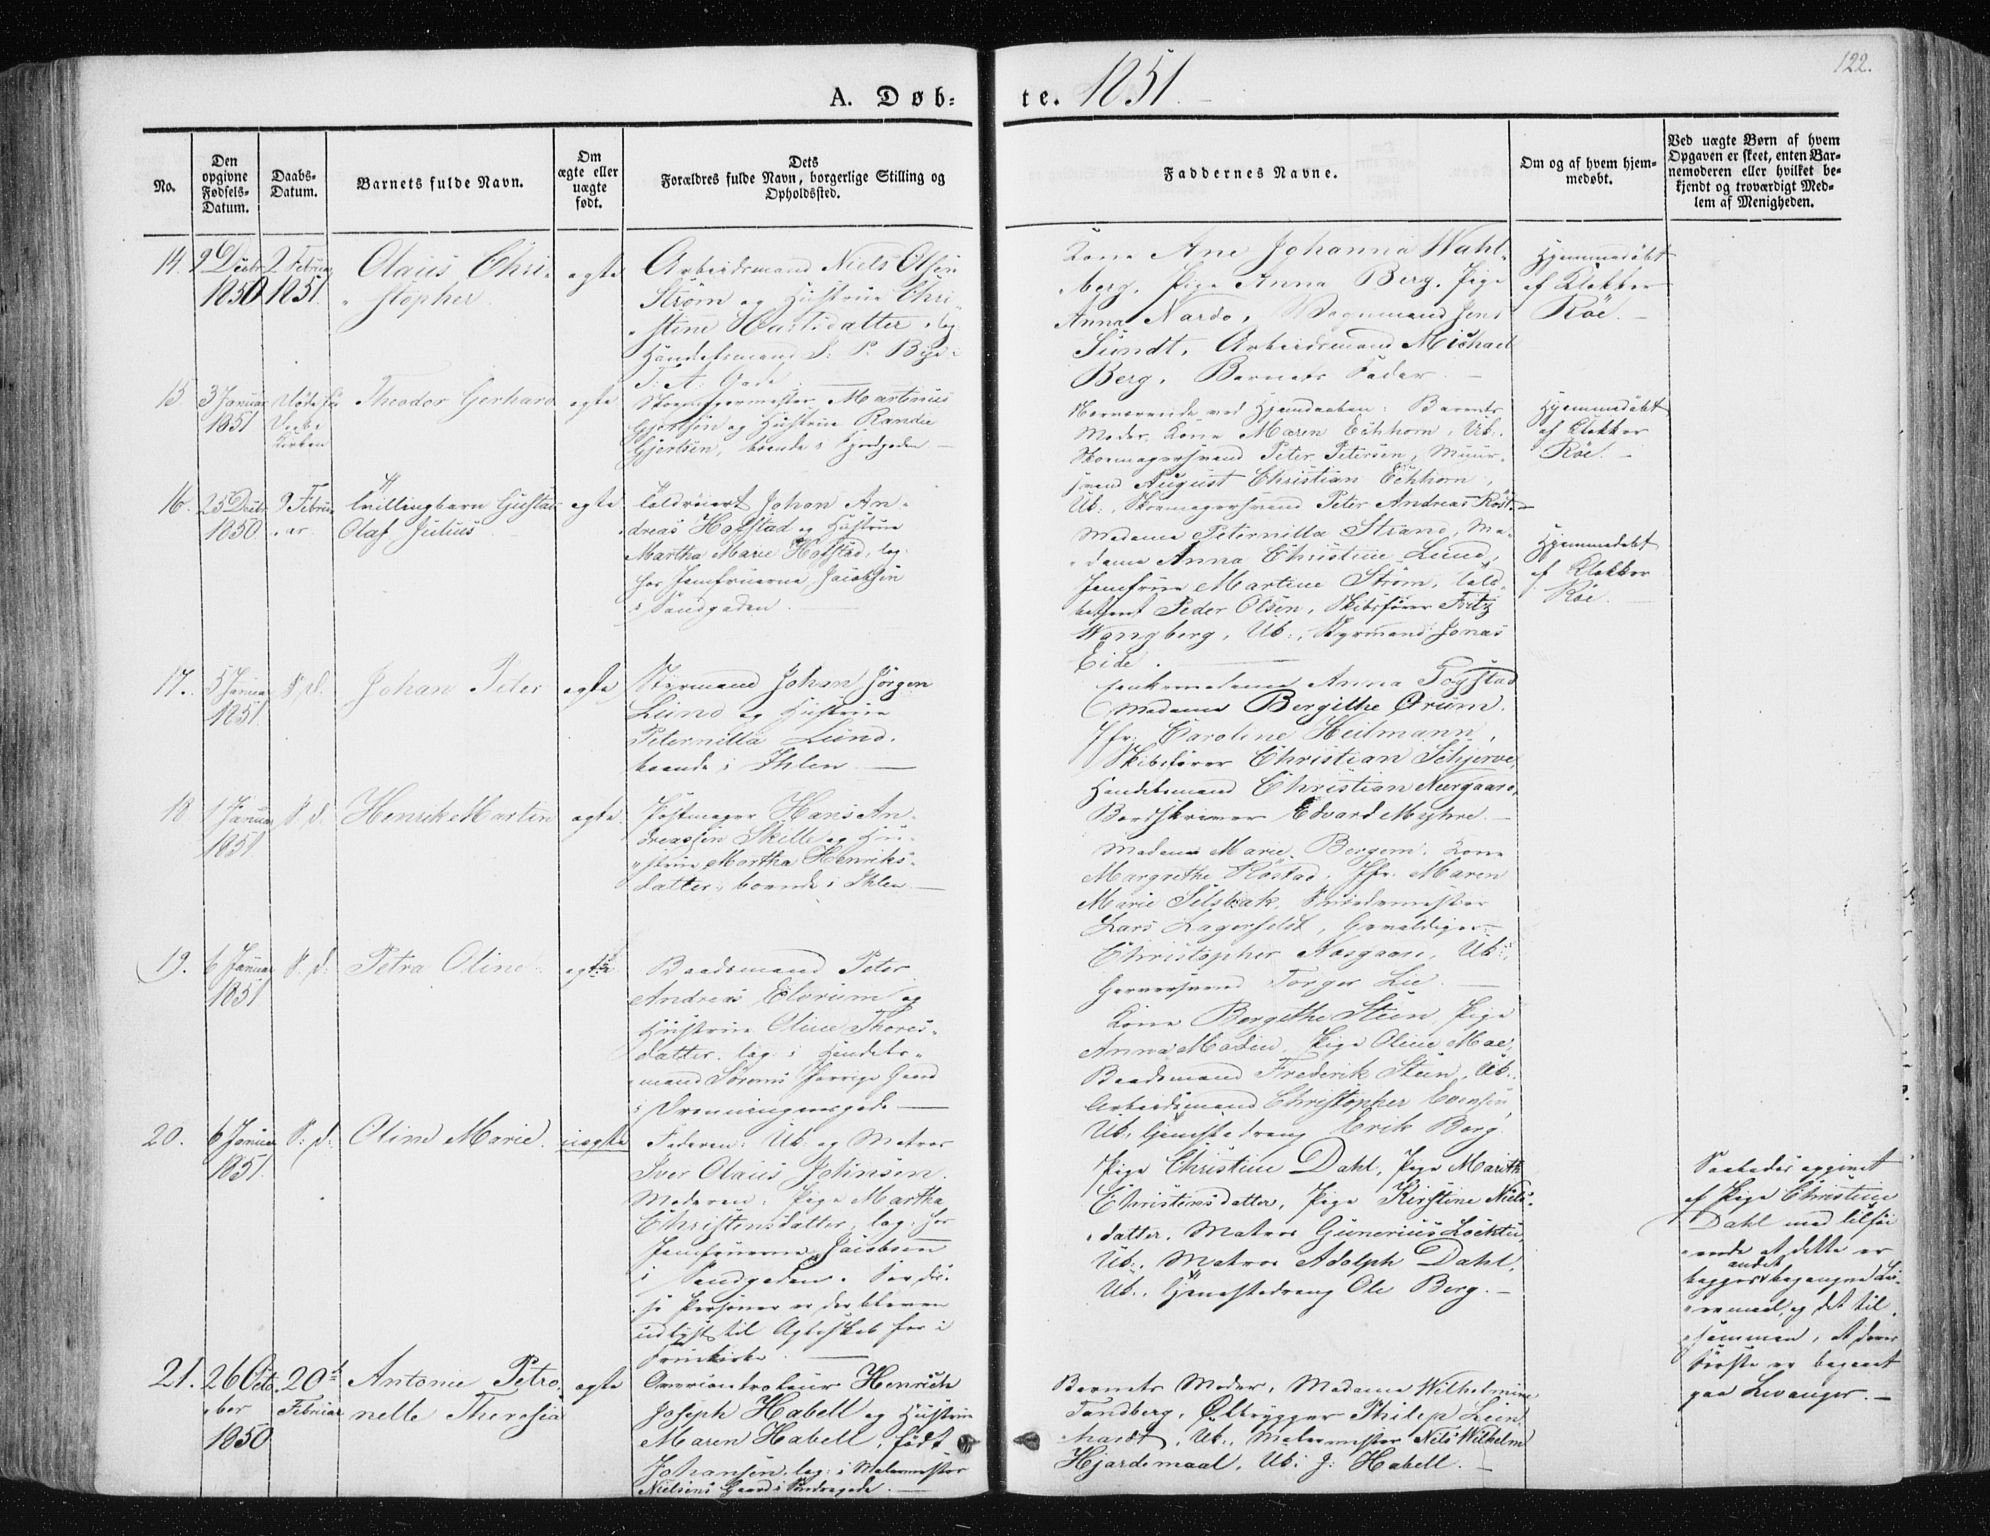 122.
A. Døb= te. 1851.
No.
Den opgivne Fødsels-Datum.
Daabs-Datum.
Barnets fulde Navn.
Om ægte eller uægte født.
Dets Forældres fulde Navn, borgerlige Stilling og Opholdssted.
Faddernes Navne.
Om og af hvem hjem-
medøbt.
Ved uægte Børn af hvem
Opgaven er skeet, enten Bar-
nemoderen eller hvilket be-
kjendt og troværdigt Med-
lem af Menigheden.
14. 9 Decbr 1850 2 Februar 1851.
Olaus Chri-
stopher.
egte
Arbeidsmand Niels Olsen
Strøm og Hustrue Chri-
stine
Handelsmand
Kone Ane Johanna Wahl-
berg, Pige Anna Berg, Pige
Anna Nardo, Vognmand Jens
Sundt, Arbeidsmand Michael
Berg, Barnets Fader.
Hjemmedøbt
af Klokker
Röe.
15 3 Januar 1851
Theodor Gerhard
egte
Skomagermester Martinus
Gjertsen og Hustrue Randie
Gjertsen, boende i
Nærværende ved Hjemdaaben: Barnets
Moder, Kone Maren Eckhorn, Ub:
Skomagersvend Peter Petersen, Muur-
svend August Christian Eckhorn,
Ub:, Skomagersvend Peter Andreas
Hjemmedøbt
af Klokker
Röe.
16. 25 Decbr 1850. 2 Februar
Tvillingbarn Gustav
Olaf Julius
egte
Toldrorert Johan An-
dreas Hofstad og Hustrue
Martha Marie Hofstad, log.
hos Jomfruerne Jacobsen
i Sandgaden.
Madame Peternilla Strand, Ma-
dame Anna Christine Lund,
Jomfrue Martine Strøm, Told-
betjent Peder Olsen, Skibsfører Fritz
Wangberg, Ub:, Styrmand Jonas
Eide.
Hjemmedøbt
af Klokker
Röe.
17. 5 Januar 1851. S. d.
Johan Peter
egte
Styrmand Johan Jörgen
Lund og Hustrue
Peternilla Lund,
boende i Ihlen.
Enkemadame Anna Togstad
Madame Bergithe Ørum.
Jfr. Caroline Heilmann,
Skibsfører Christian Schjerve,
Handelsmand Christian Neergaard,
Bordskriver Edvard Myhre.
18 1 Januar 1851. S. d.
Henrik Martin
egte.
Postmager Hans An-
dreassen Skille og Hu-
strue Martha Henriks-
datter, boende i Ihlen.
Madame Marie Bergem, Kone
Margrethe Röstad, Jfr. Maren
Marie Selsbak, Smedemester
Lars Lagerfeldt, Gevaldiger
Christopher Aasgaard, Ub:,
Garversvend Torger Lie.
19. 6 Januar 1851 S. d.
Petra Oline
egte
Baadsmand Peter
Andreas Elvrum og
Hustrue Oline Thores-
datter, log: i Handels-
mand Gaard
i Dronningensgade
Kone Bergethe Steen, Pige
Anna Pige Oline Moe,
Baadsmand Frederik Steen, Ub:
Arbeidsmand Christopher Evensen,
Ub, Tjenestedreng Erik Berg.
20. 6 Januar 1851. S. d.
Oline Marie.
uegte
Faderen: Ub: og Matros
Iver Olaus Johnsen.
Moderen: Pige Martha
Christensdatter, log: hos
Jomfruerne Jacobsen
i Sandgaden. For dis-
se Personer er der bleven
udlyst til Ægteskab her i
Fruekirke.
Pige Christine Dahl, Pige Marith
Christensdatter, Pige Kirstine Niels-
datter, Matros Gunerius
Ub:, Matros Adolph Dahl,
Ub:, Tjenestedreng Ole Berg.
Saaledes opgivet
af Pige Christine
Dahl med tilføi-
ende at dette er
begges andet begangne Lei-
ermaal, og det til
sammen, at deres
første er begaaet
paa Levanger.
21. 26 Octo-
ber 1850 20de Februar
Antonie Petro-
nelle Theresia
egte
Overcontroleur Henrich
Joseph Habell og Hustrue
Maren Habell, født
Johansen, log: i Malermester
Nielsens Gaard i Søndregade.
Barnets Moder, Madame Wilhelmine
Tandberg, Ølbrygger Philip Lein-
hardt, Ub:, Malermester Nils Wilhelm
Hjardemaal, Ub: J: Habell.